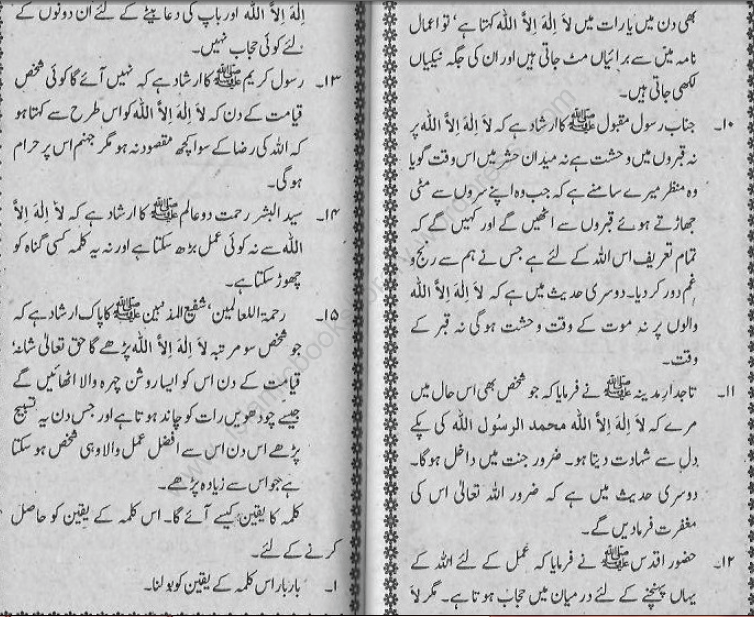 بھی دن میں یا رات میں لاَ اِلٰهَ اِلاَّ اللّٰه کہتا ہے، تو اعمال
نامہ میں سے برائیاں مٹ جاتی ہیں اور ان کی جگہ نیکیاں
لکھی جاتی ہیں۔
۱۰۔ جناب رسول مقبول ﷺ کا ارشاد ہے کہ لاَ اِلٰهَ اِلاَّ اللّٰه پر
نہ قبروں میں وحشت ہے نہ میدان حشر میں اس وقت گویا
وہ منظر میرے سامنے ہے کہ جب وہ اپنے سروں سے مٹی
جھاڑتے ہوئے قبروں سے اٹھیں گے اور کہیں گے کہ
تمام تعریف اس اللہ کے لئے ہے جس نے ہم سے رنج و
غم دور کر دیا۔ دوسری حدیث میں ہے کہ لاَ اِلٰهَ اِلاَّ اللّٰه
والوں پر نہ موت کے وقت وحشت ہوگی نہ قبر کے
وقت۔
۱۱۔ تاجدار مدینہ ﷺ نے فرمایا کہ جو شخص بھی اس حال میں
مرے کہ لاَ اِلٰهَ اِلاَّ اللّٰه محمد الرسُول اللّٰه کی پکے
دل سے شہادت دیتا ہو۔ ضرور جنت میں داخل ہوگا۔
دوسری حدیث میں ہے کہ ضرور اللہ تعالیٰ اس کی
مغفرت فرمادیں گے۔
۱۲۔ حضور اقدس ﷺ نے فرمایا کہ عمل کے لئے اللہ کے
یہاں پہنچنے کے لئے درمیان میں حجاب ہوتا ہے۔ مگر لاَ
اِلٰهَ اِلاَّ اللّٰه اور باپ کی دعا بیٹے کے لئے ان دونوں کے
لئے کوئی حجاب نہیں۔
۱۳۔ رسول کریم ﷺ کا ارشاد ہے کہ نہیں آئے گا کوئی شخص
قیامت کے دن کہ لاَ اِلٰهَ اِلاَّ اللّٰه کو اس طرح سے کہتا ہو
کہ اللہ کی رضا کے سوا کچھ مقصود نہ ہو مگر جہنم اس پر حرام
ہوگی۔
۱۴۔ سید البشر رحمت دو عالم ﷺ کا ارشاد ہے کہ لاَ اِلٰهَ اِلاَّ
اللّٰه سے نہ کوئی عمل بڑھ سکتا ہے اور نہ یہ کلمہ کسی گناہ کو
چھوڑ سکتا ہے۔
۱۵۔ رحمۃ اللعالمین، شفیع المذنبین ﷺ کا پاک ارشاد ہے کہ
جو شخص سو مرتبہ لاَ اِلٰهَ اِلاَّ اللّٰه پڑھے گا حق تعالیٰ شانہ،
قیامت کے دن اس کو ایسا روشن چہرہ والا اٹھائیں گے
جیسے چودھویں رات کو چاند ہوتا ہے اور جس دن یہ تسبیح
پڑھے اس دن اس سے افضل عمل والا وہی شخص ہو سکتا
ہے جو اس سے زیادہ پڑھے۔
کلمہ کا یقین کیسے آئے گا۔ اس کلمہ کے یقین کو حاصل
کرنے کے لئے۔
۱۔ بار بار اس کلمہ کے یقین کو بولنا۔